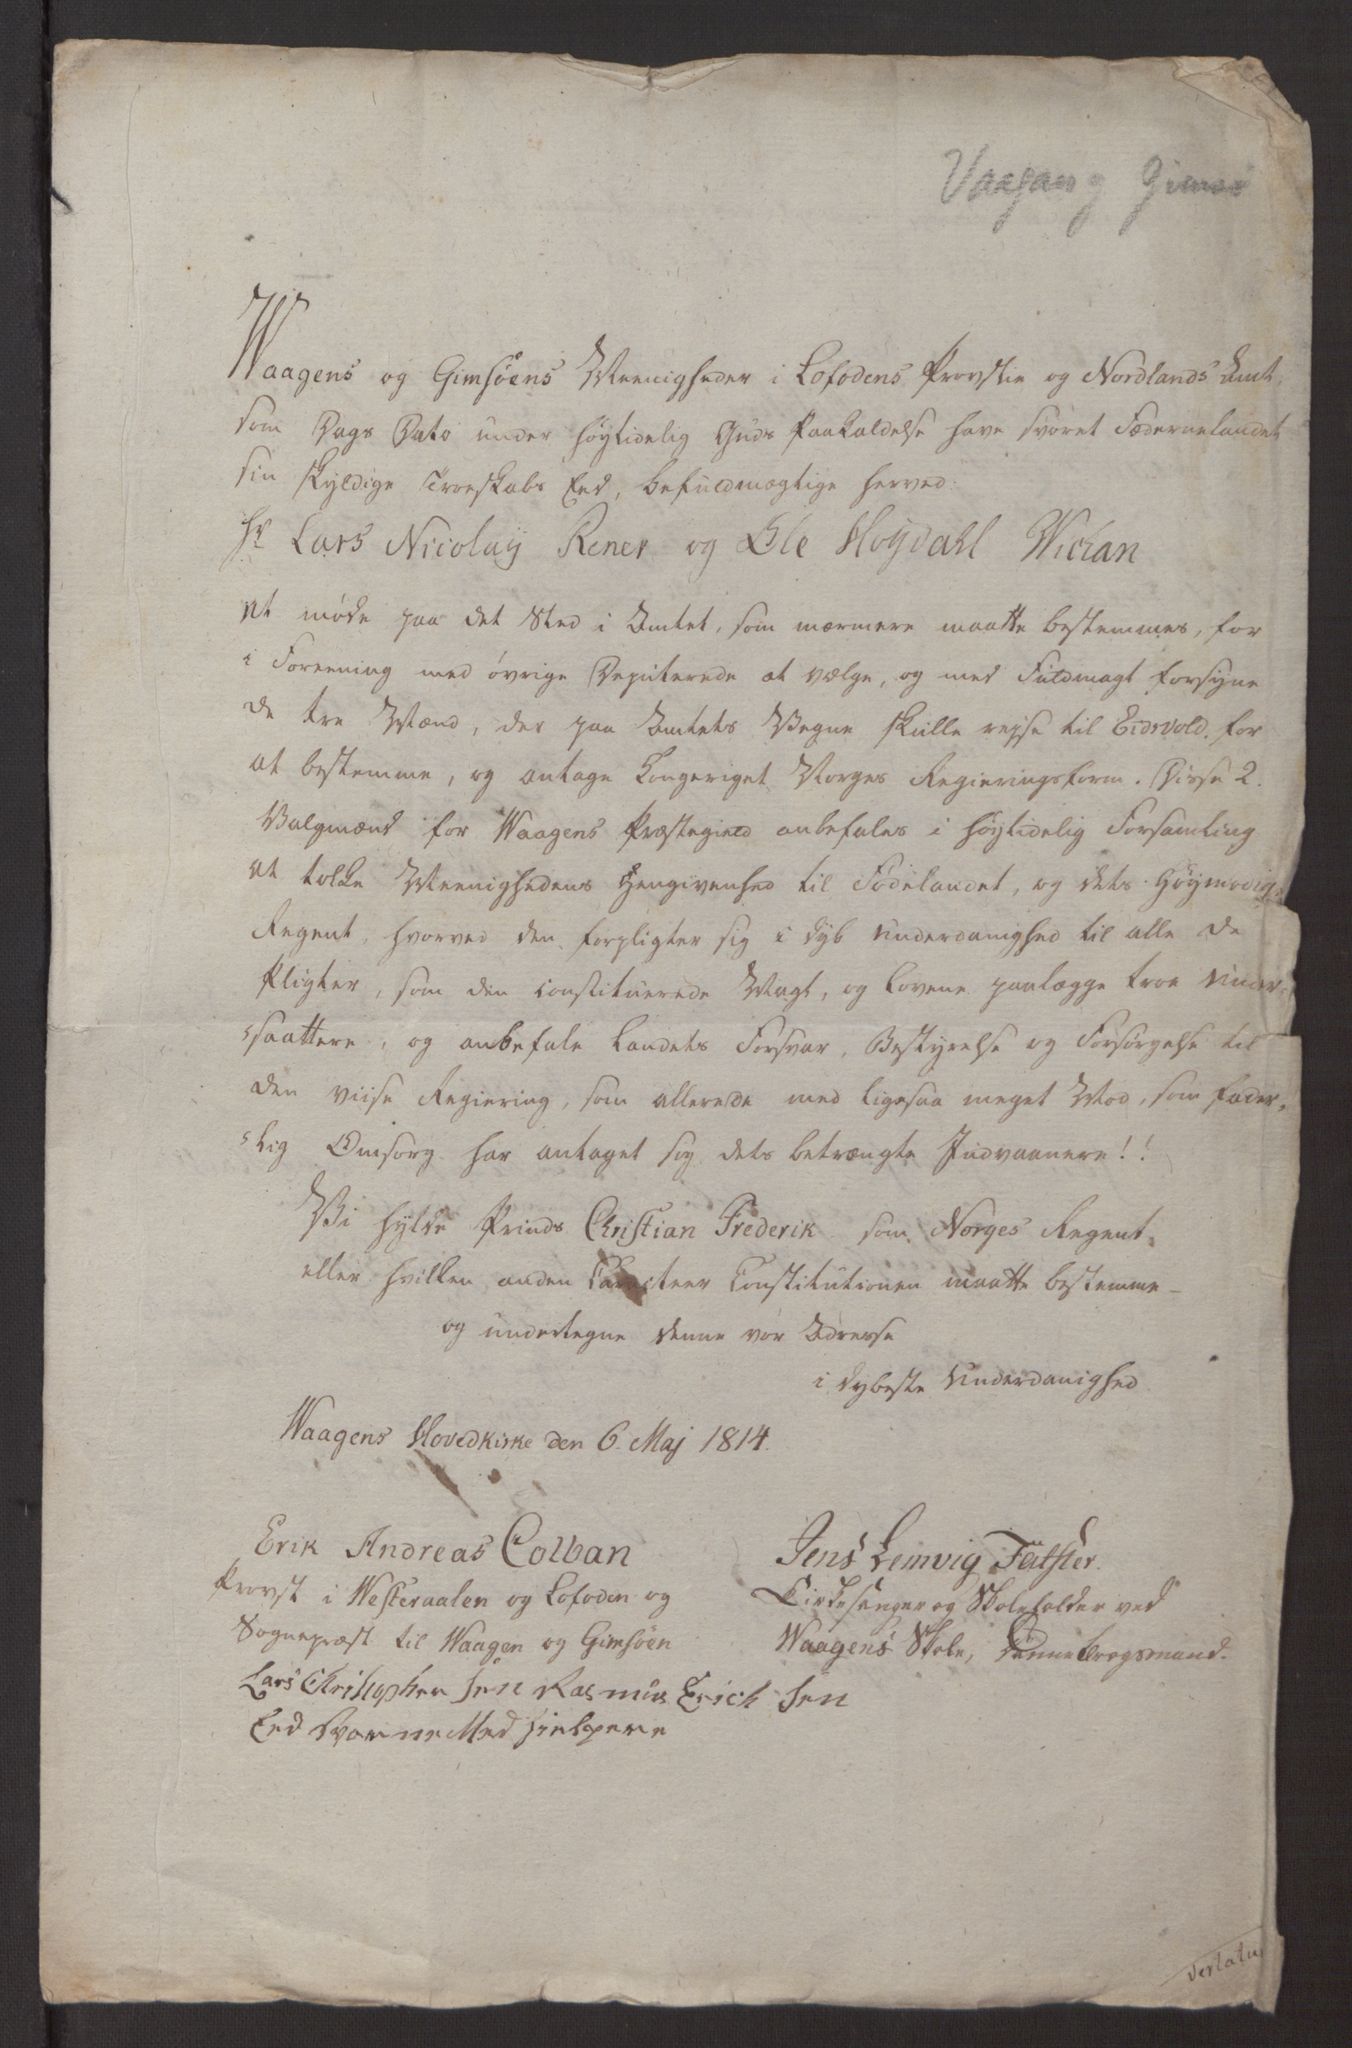 Vaagan og Gimsø
Waagens og Gimsøens Meenigheder i Lofodens Provstie og Nordlands Amt,
som Dags Dato under høytidelig Guds Paakaldelse have svoret Fædernelandet
sin skyldige Troeskabs Eed, befuldmægtige herved:
Hr Lars Nicolay Rener og Ole Høgdahl Wichan
at møde paa det Sted i Amtet, som nærmere maatte bestemmes, for
i Foreening med øvrige Deputerede at vælge, og med Fuldmagt forsyne
de tre Mænd, der paa Amtets Vegne skulle rejse til Eidsvold, for
at bestemme, og antage Kongeriget Norges Regieringsform. Disse 2
Valgmænd for Waagens Præstegield anbefales i høytidelig Forsamling
at tolke Meenighedens Hengivenhed til Fødelandet, og dets Høymodige
Regent, hvorved den forpligter sig i dyb Underdanighed til alle de
Pligter, som den constituerede Magt, og Lovene paalægge troe Under-
saattere, og anbefale Landets Forsvar, Bestyrelse og Forsørgelse til
den viise Regiering, som allerede med ligesaa meget Mod, som fader-
lig Omsorg har antaget sig dets betrængte Indvaanere!!
Vi hylde Prinds Christian Frederik som Norges Regent
eller hvilken anden Caracteer Constitutionen maatte bestemme -
og undertegne denne vor Adresse
i dybeste Underdanighed
Waagens Hovedkirke den 6. Maj 1814.
Erik Andreas Colban
Provst i Westeraalen og Lofoden og
Sognepræst til Waagen og Gimsøen
Jens Lemvig Fatster.
Kirkesanger og Skoleholder ved
Waagens Skole, Dannebrogsmand.
Lars Christopher Sen Rasmus Erich Sen
Eed Svorne Med hielpere
Vertatur